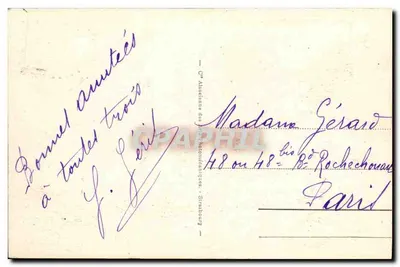 Bonnes amitiés
à toutes trois
Cie Alsacienne des Arts Photomécaniques - Strasbourg
Madame Gérard
48 ou 48 bis Bd Rochechouart
Paris
CPAPHIL